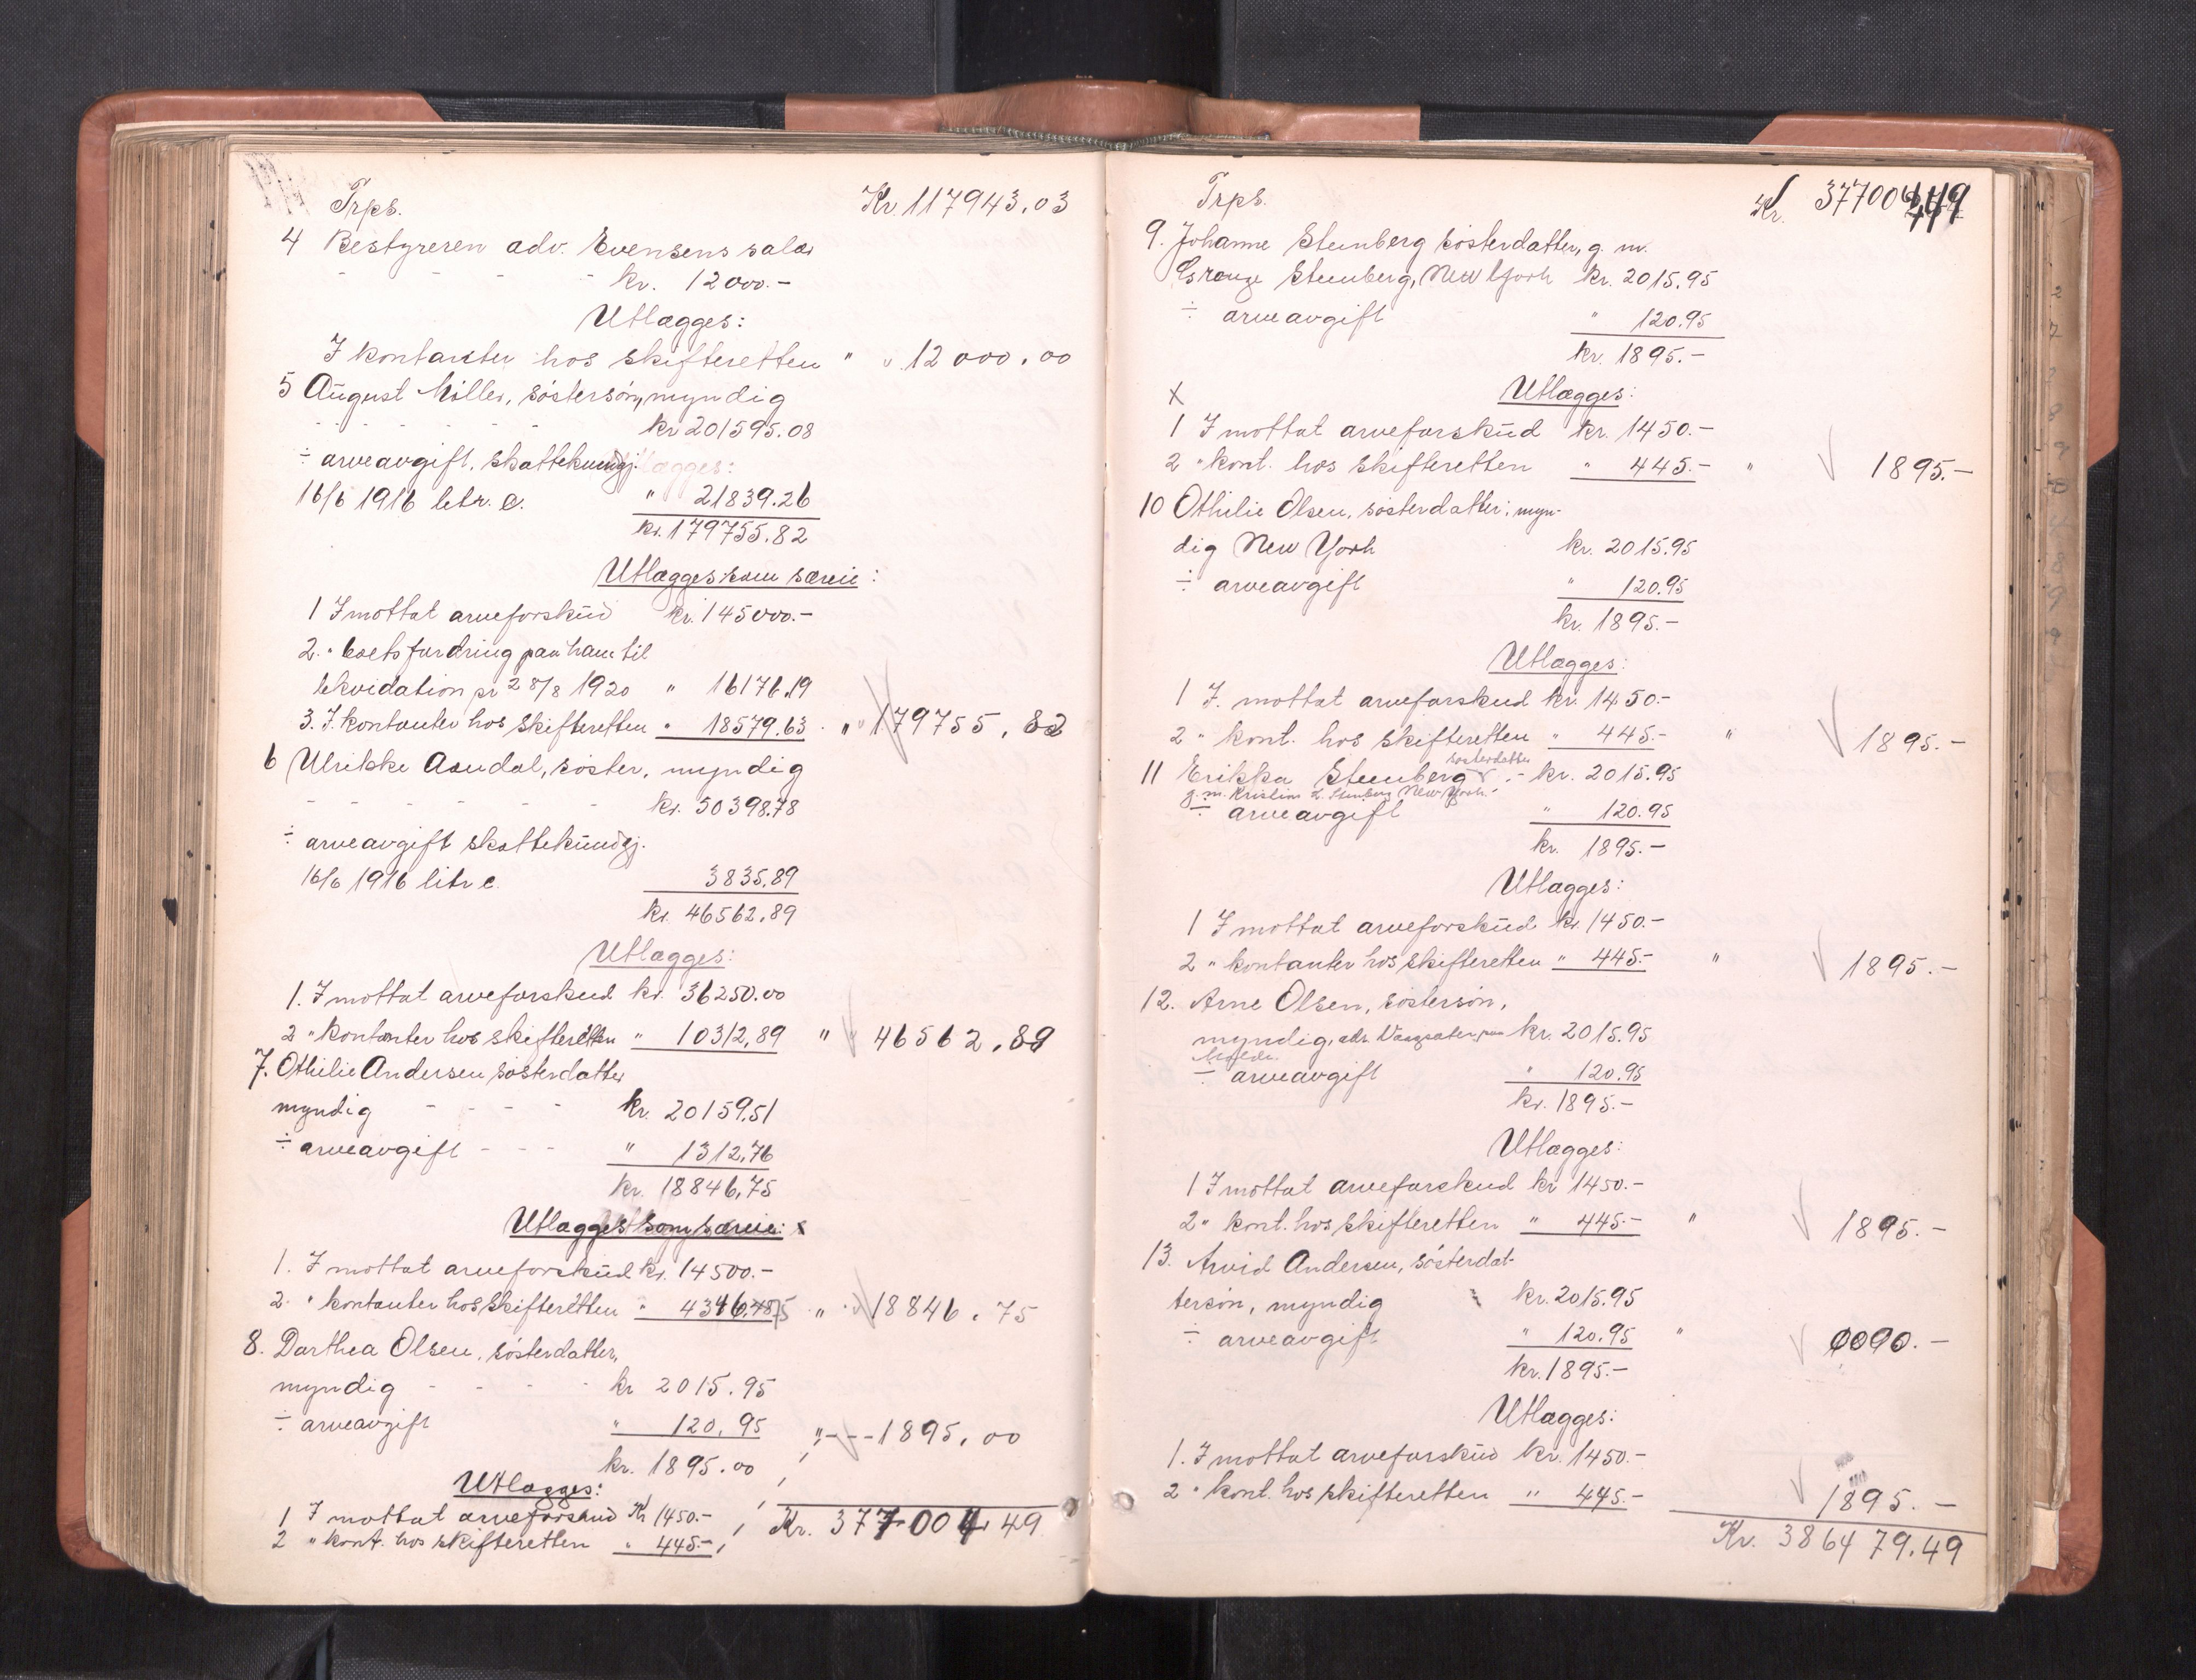 Trps. Kr. 117943.03
4 Bestyreren adv. Evensens salær
- - - - kr. 12000.-
Utlægges:
I kontanter hos skifteretten " " 12000.00
5 August Möller, söstersön, myndig
- - - - - - kr 201595.08
÷ arveavgift, skattekundgj.
16/6 1916 litr. c. " 21839.26
kr. 179755.82
Utlægges som særeie:
1 I mottat arveforskud kr. 145000.-
2. " boets fordring paa ham til
likvidation pr 28/8 1920 " 16176.19
3. I. kontanter hos skifteretten " 18579.63 " " 179755.82
6 Ulrikke Aamdal, söster, myndig
- - - - - - kr. 50398.78
÷ arveavgift skattekundgj.
16/6 1916 litr c. 3835.89
kr. 46562.89
Utlægges:
1. I mottat arveforskud kr. 36250.00
2 " kontanter hos skifteretten " 10312,89 " " 46562.89
7. Othilie Andersen sösterdatter
myndig - - - - kr. 20159,51
÷ arveavgift - - - " 1312,76
kr. 18846,75
Utlægges som særeie: x
1. I mottat arveforskud kr. 14500.-
2. " kontanter hos skifteretten " 4346,75 " " 18846.75
8. Dorthea Olsen, sösterdatter,
myndig - - - - kr 2015.95
÷ arveavgift " 120,95 " - - - 1895,00
kr. 1895.00
Utlægges:
1 I mottat arveforskud Kr 1450.-
2 " kont. hos skifteretten " 445.- Kr. 377004.49
Trps. Kr. 377004.49
9. Johanne Stenberg sösterdatter, g. m.
George Stenberg, New York kr. 2015.95
÷ arveavgift " 120.95
kr. 1895.-
x Utlægges:
1 I mottat arveforskud kr. 1450.-
2 " kont. hos skifteretten " 445.- " 1895.-
10 Othilie Olsen, sösterdatter, myn-
dig New York kr. 2015.95
÷ arveavgift " 120.95
kr. 1895.-
Utlægges:
1 I. mottat arveforskud kr. 1450.-
2 " kont. hos skifteretten " 445.- " 1895.-
sösterdatter
11 Erikka Stenberg - kr. 2015.95
g. m. Kristian Stenberg New York.
÷ arveavgift " 120.95
kr. 1895.-
Utlægges:
1 I mottat arveforskud kr. 1450.-
2 " kontanter hos skifteretten " 445.- " 1895.-
12. Arne Olsen, sösterson,
myndig, adr. kr. 2015.95
÷ arveavgift " 120.95
kr. 1895.-
Utlægges:
1 I mottat arveforskud kr 1450.-
2 " kont. hos skifteretten " 445.- " 1895.-
13. Arvid Andersen, sösterdat-
tersön, myndig kr. 2015.95
÷ arveavgift " 120.95 " 0090.-
kr. 1895.-
Utlægges:
1. I mottat arveforskud kr. 1450.-
2 " kont. hos skifteretten " 445.- 1895.-
Kr. 386479.49